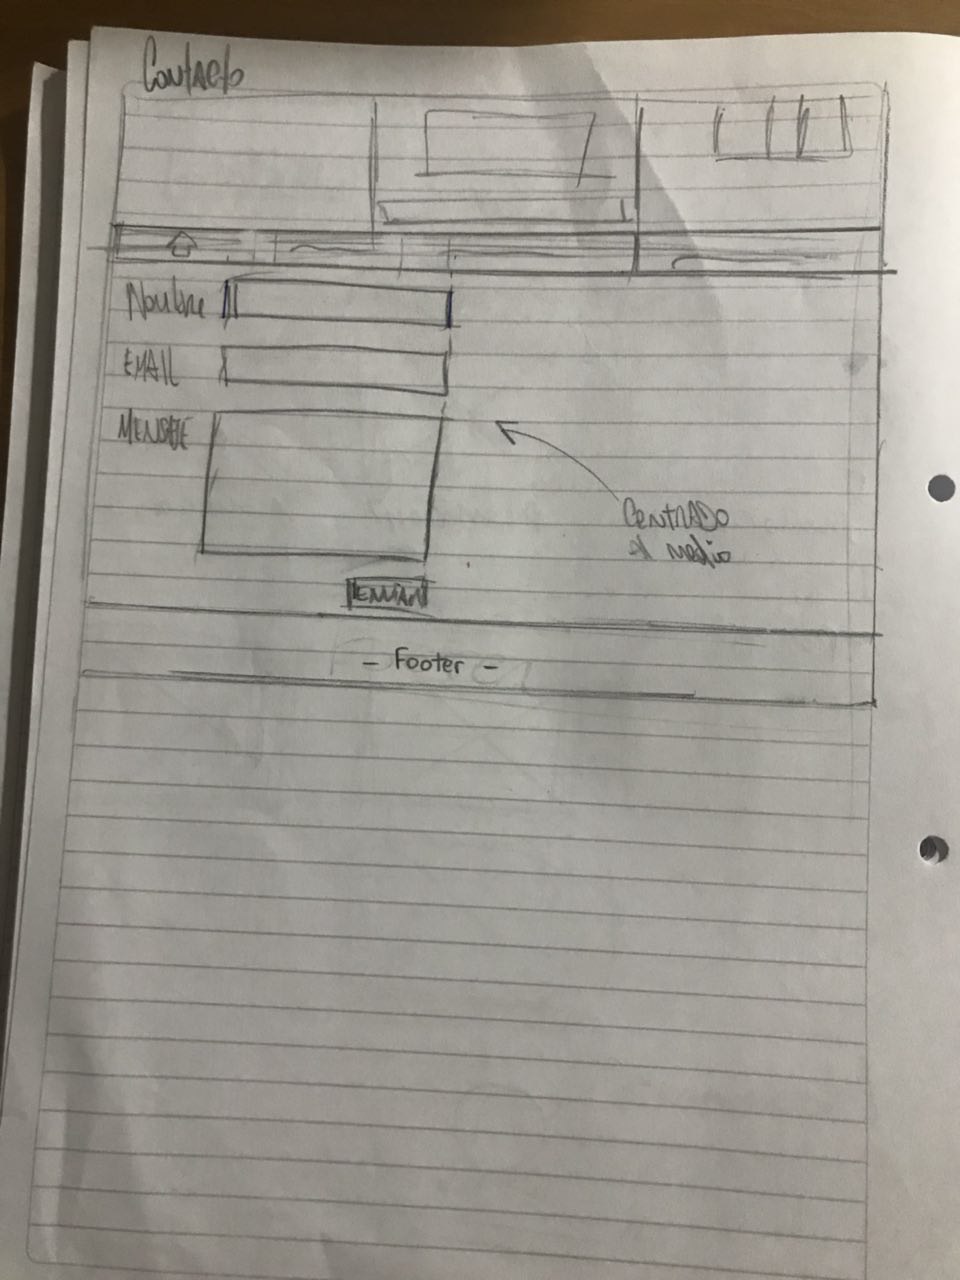 Contacto
Nombre
EMAIL
MENSAJE
CENTRADO
al medio
ENVIAR
- Footer -